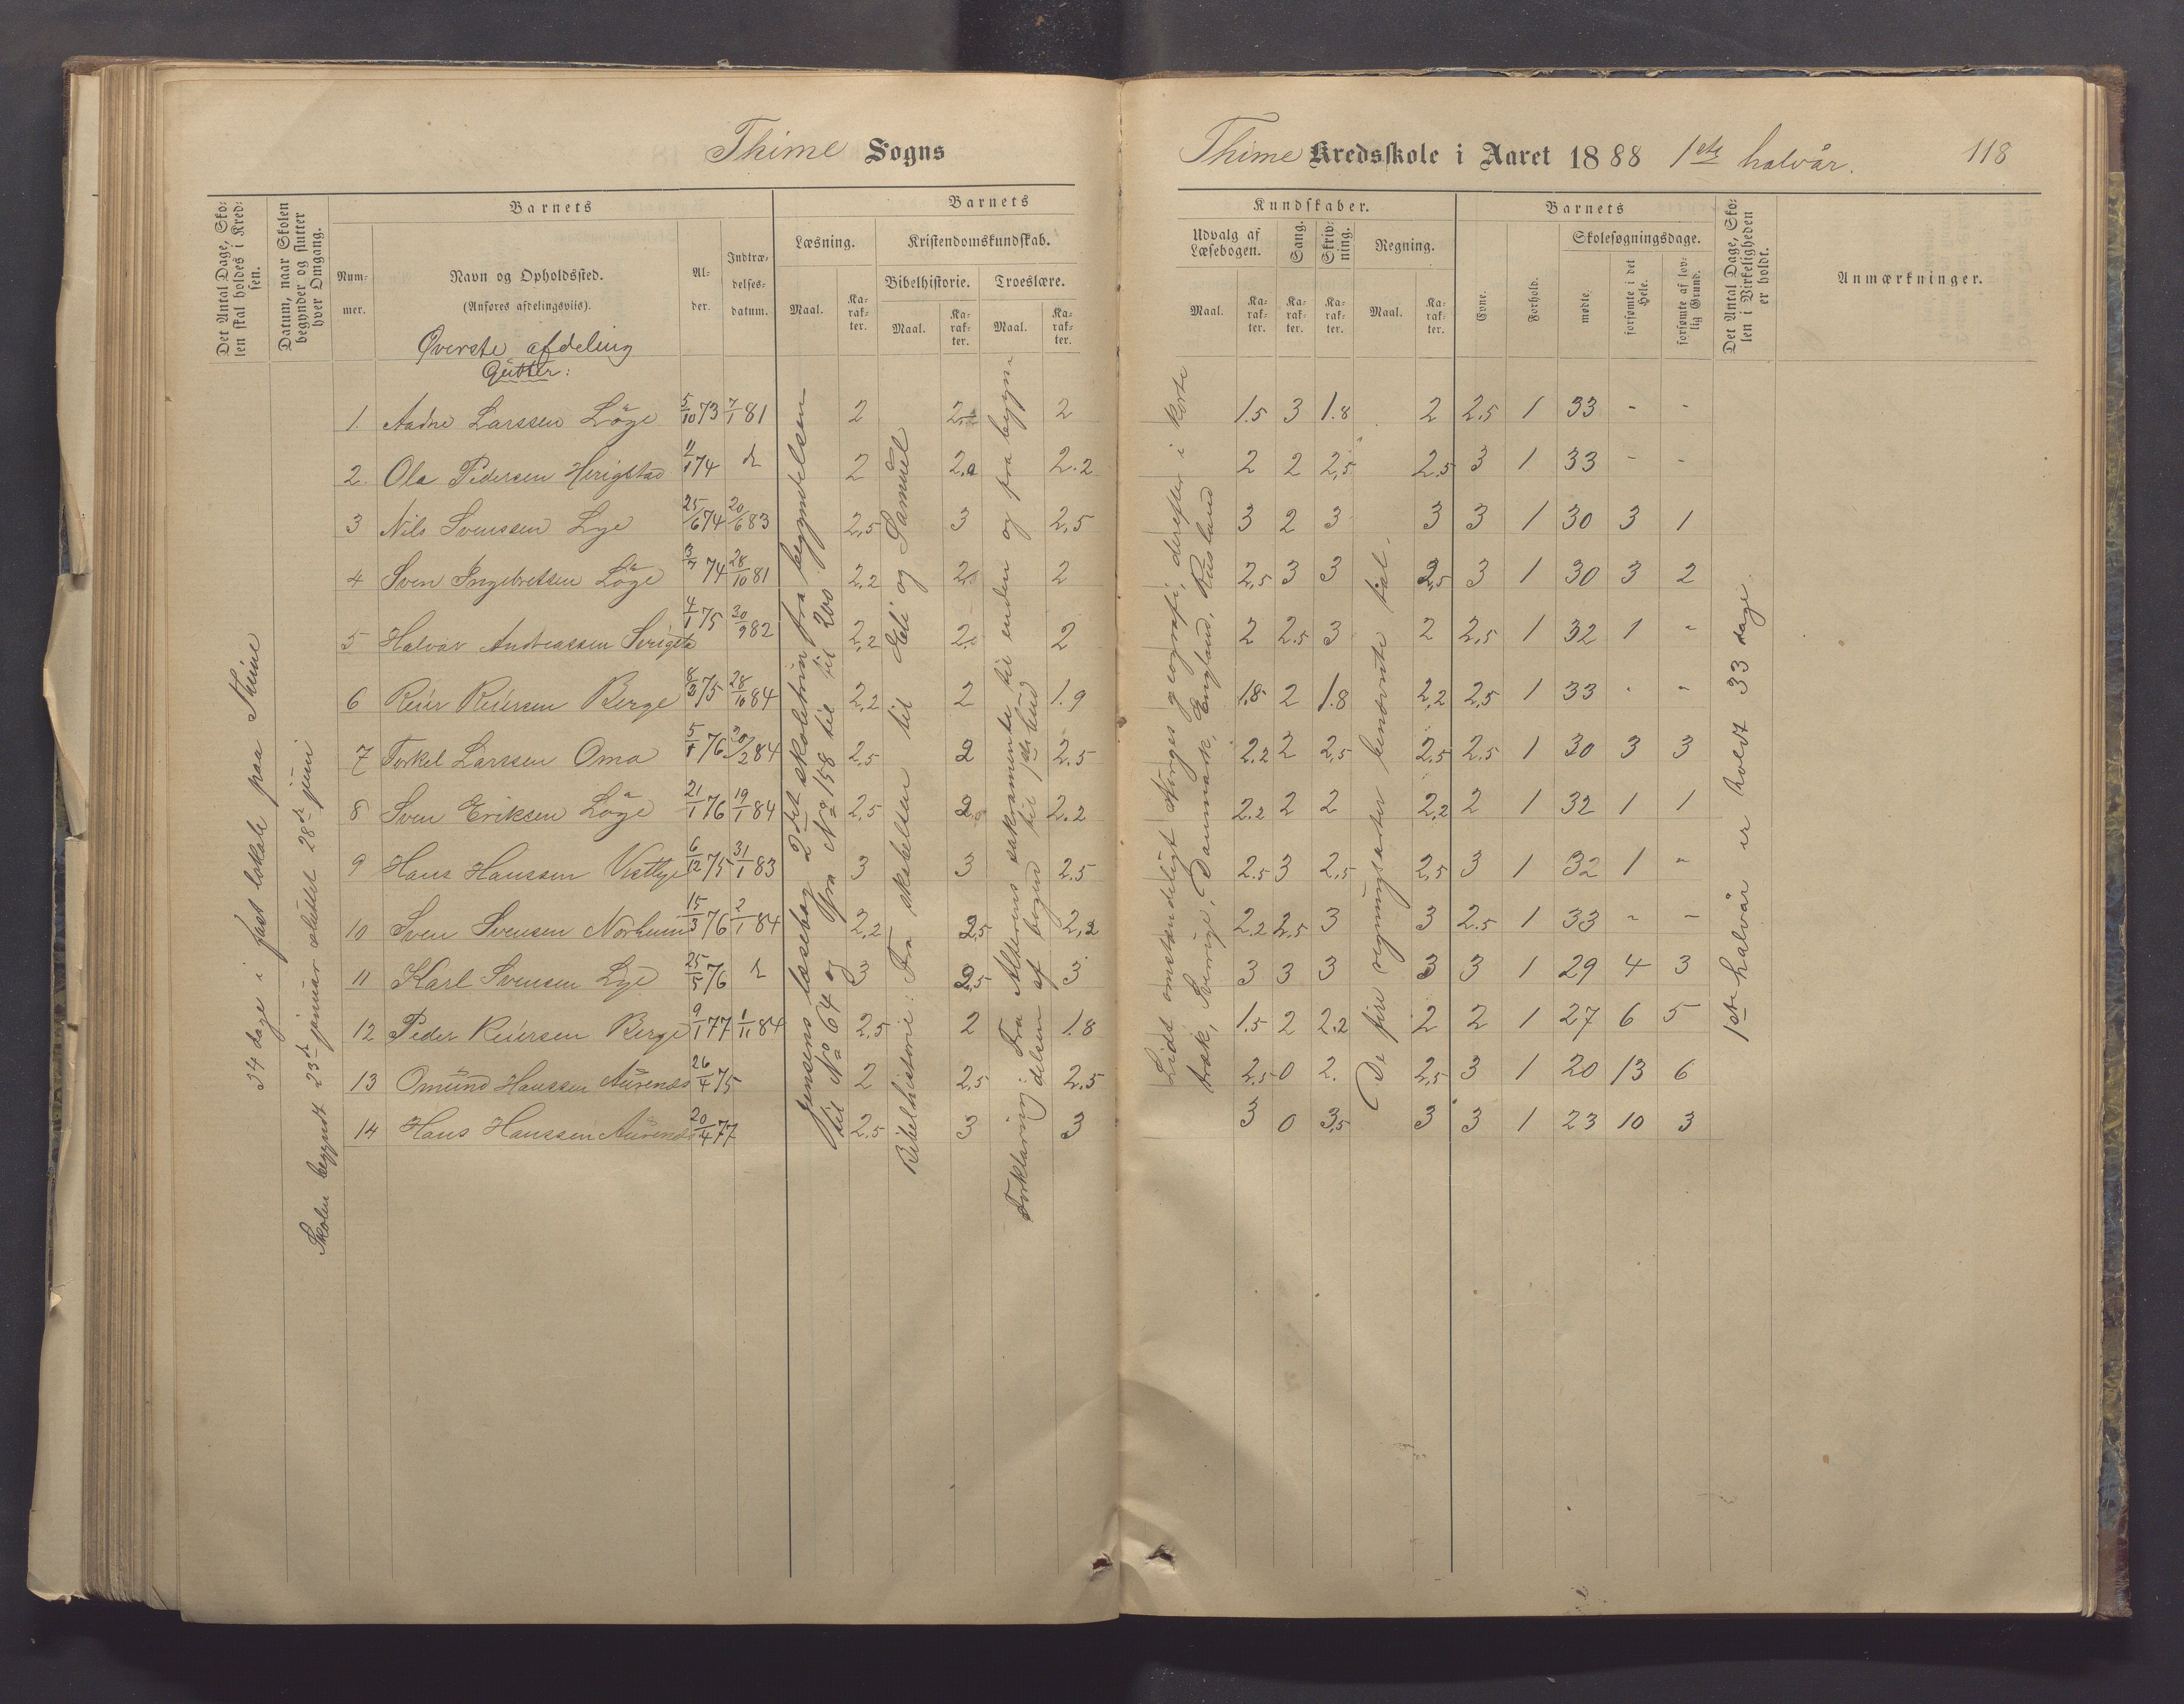 Thime Sogns
Det Antal Dage, Sko-
len skal holdes i Kred-
sen.
Datum, naar Skolen
begynder og slutter
hver Omgang.
Barnets
Barnets
Num-
mer.
Navn og Opholdssted.
(Anføres afdelingsviis).
Al-
der.
Indtræ-
delses-
datum.
Læsning.
Kristendomskundskab.
Maal.
Ka-
rak-
ter.
Bibelhistorie.
Troeslære.
Maal.
Ka-
rak-
ter.
Maal.
Ka-
rak-
ter.
Øverste afdeling
Gutter:
34 dage i fast lokale paa Thime
Skolen begyndt 23de januar sluttet 28de juni
Jensens læsebog 2det skoletrin fra begyndelsen
til No 64 og fra No 158 til til 200
Bibelhistorie: Fra skabelsen til Eli og Samuel
Forklaring: Fra Alterens sakramente til enden og fra begyn-
delsen af bogen til 1ste bud
1. Aadne Larssen Löge 5/10 73 7/1 81 2 2 2
2. Ola Pedersen Herigstad 11/1 74 d 2 2.2 2.2
3 Nils Svenssen Lye 25/6 74 20/6 83 2,5 3 2,5
4 Sven Ingebretsen Löge 3/7 74 28/10 81 2,2 2 2
5 Halvar Andreassen Serigsta 4/1 75 20/9 82 2,2 2 2
6 Reier Reiersen Berge 8/3 75 28/10 84 2,2 2 1.9
7 Torkel Larssen Oma 5/1 76 20/2 84 2,5 2 2.5
8 Sven Eriksen Löge 21/1 76 19/1 84 2,5 2 2.2
9 Hans Hanssen Vestlye 6/12 75 31/1 83 3 3 2.5
10 Sven Svensen Norheim 15/3 76 2/1 84 2,2 2,5 2,2
11 Karl Svensen Lye 25/5 76 d 3 2,5 3
12 Peder Reiersen Berge 9/1 77 1/11 84 2,5 2 1.8
13 Omund Hanssen Aurenes 26/4 75 2 2,5 2.5
14 Hans Hanssen Aurenes 20/4 77 2.5 3 3
Thime Kredsskole i Aaret 1888 1ste halvår. 118
Kundskaber.
Barnets
Det Antal Dage, Sko-
len i Virkeligheden
er holdt.
Anmærkninger.
Udvalg af
Læsebogen.
Sang.
Skriv-
ning.
Regning.
Skolesøgningsdage.
Maal.
Ka-
rak-
ter.
Ka-
rak-
ter.
Ka-
rak-
ter.
Maal.
Ka-
rak-
ter.
Evne.
Forhold.
mødte.
forsømte i det
Hele.
forsømte af lov-
lig Grund.
Lidt omstændeligt Norges geografi, derefter i korte
træk, Sverige, Danmark, England, Rusland
De fire regningsarter benævnte tal.
1ste halvår er holdt 33 dage.
1.5 3 1.8 2 2.5 1 33 - -
2 2 2,5 2.5 3 1 33 - -
3 2 3 3 3 1 30 3 1
2,5 3 3 2,5 3 1 30 3 2
2 2.5 3 2 2,5 1 32 1 -
1.8 2 1.8 2,2 2,5 1 33 - -
2.2 2 2,5 2.5 2.5 1 30 3 3
2.2 2 2 2,2 2 1 32 1 1
2.5 3 2,5 2,5 3 1 32 1 -
2.2 2.5 3 3 2.5 1 33 - -
3 3 3 3 3 1 29 4 3
1.5 2 2.2 2 2 1 27 6 5
2.5 0 2. 2,5 3 1 20 13 6
3 0 3,5 3 3 1 23 10 3